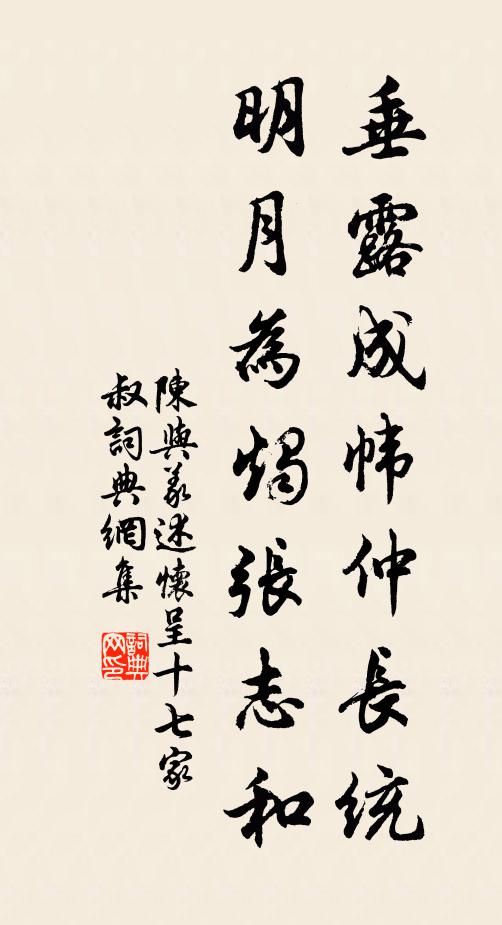 垂露成幃仲長統
明月為燭張志和
陳與義述懷呈十七家
叔詞典網集
詞典網印